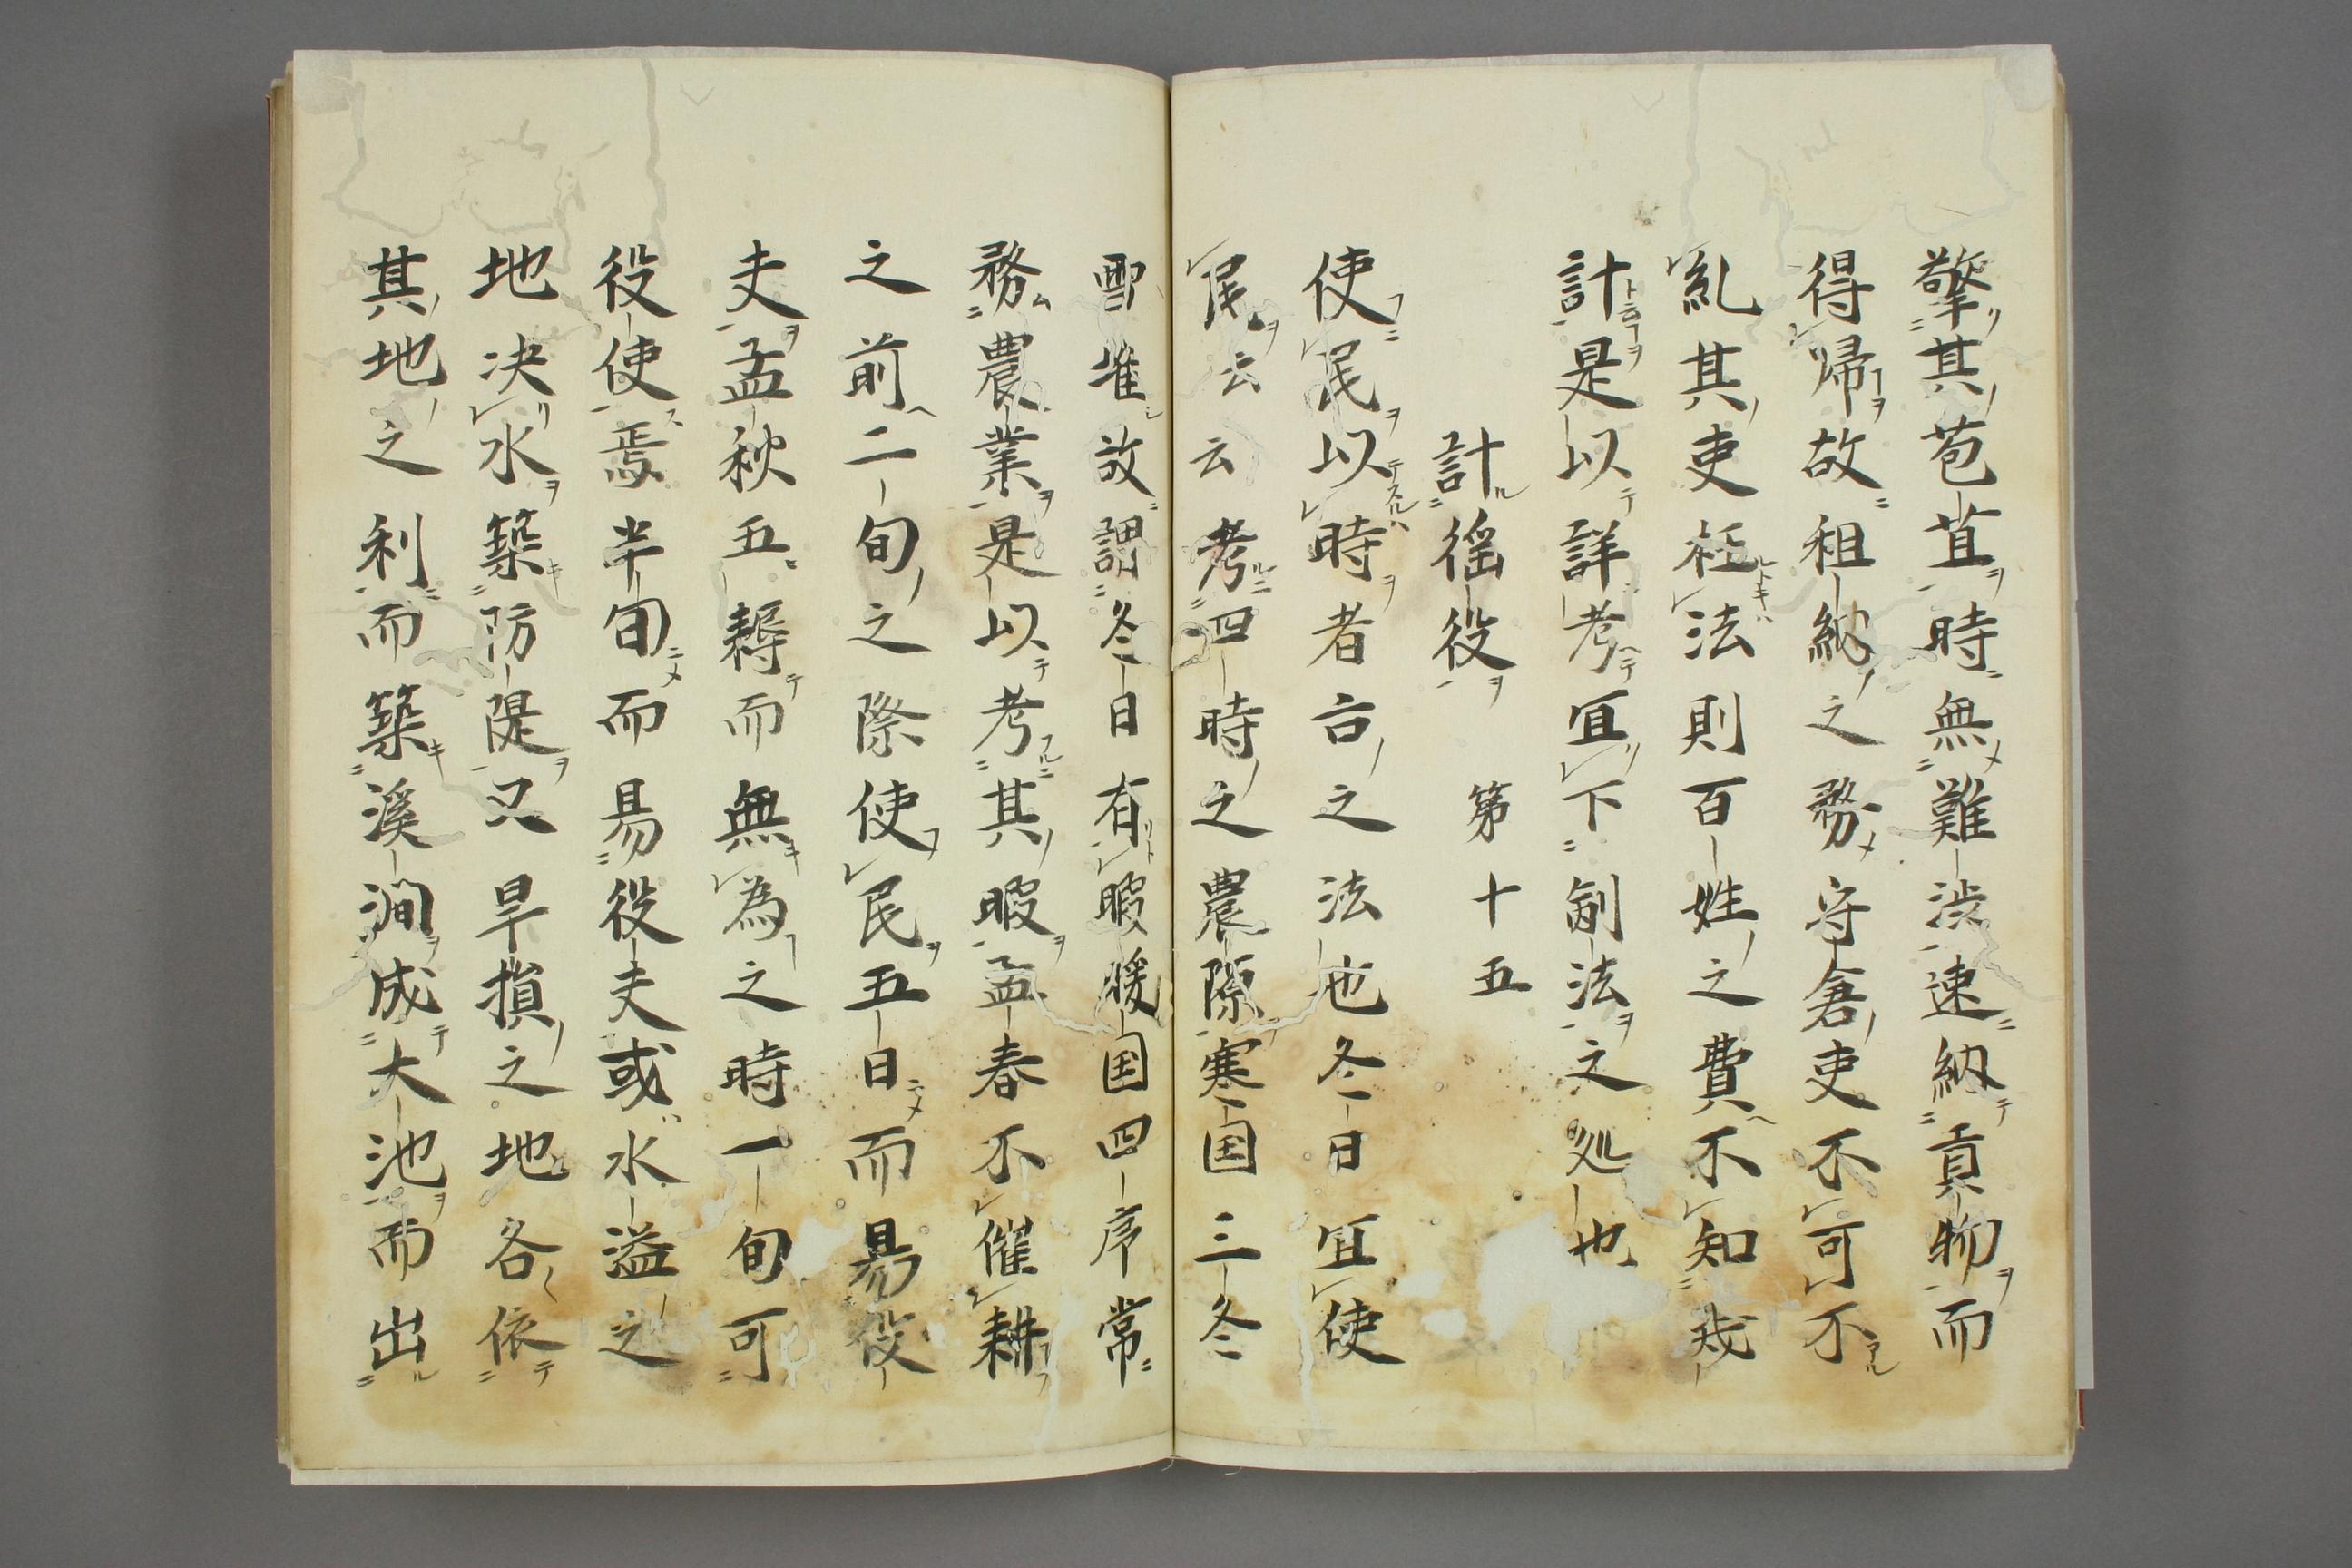 擎其苞苴時無難渋速納貢物而
得帰故租納之務守倉吏不可不
乱其吏枉法則百姓之費不知幾
計是以詳考宜下制法之処也
計徭役　第十五
使民以時者古之法也冬日宜使
民云云考四時之農際寒国三冬
雪堆故謂冬日有暇暖国四序常
務農業是以考其暇孟春不催耕
之前二旬之際使民五日而易役
夫孟秋五耨而無為之時一旬可
役使焉半旬而易役夫或水溢之
地決水築防隄又旱損之地各依
其地之利而築渓澗成大池而出